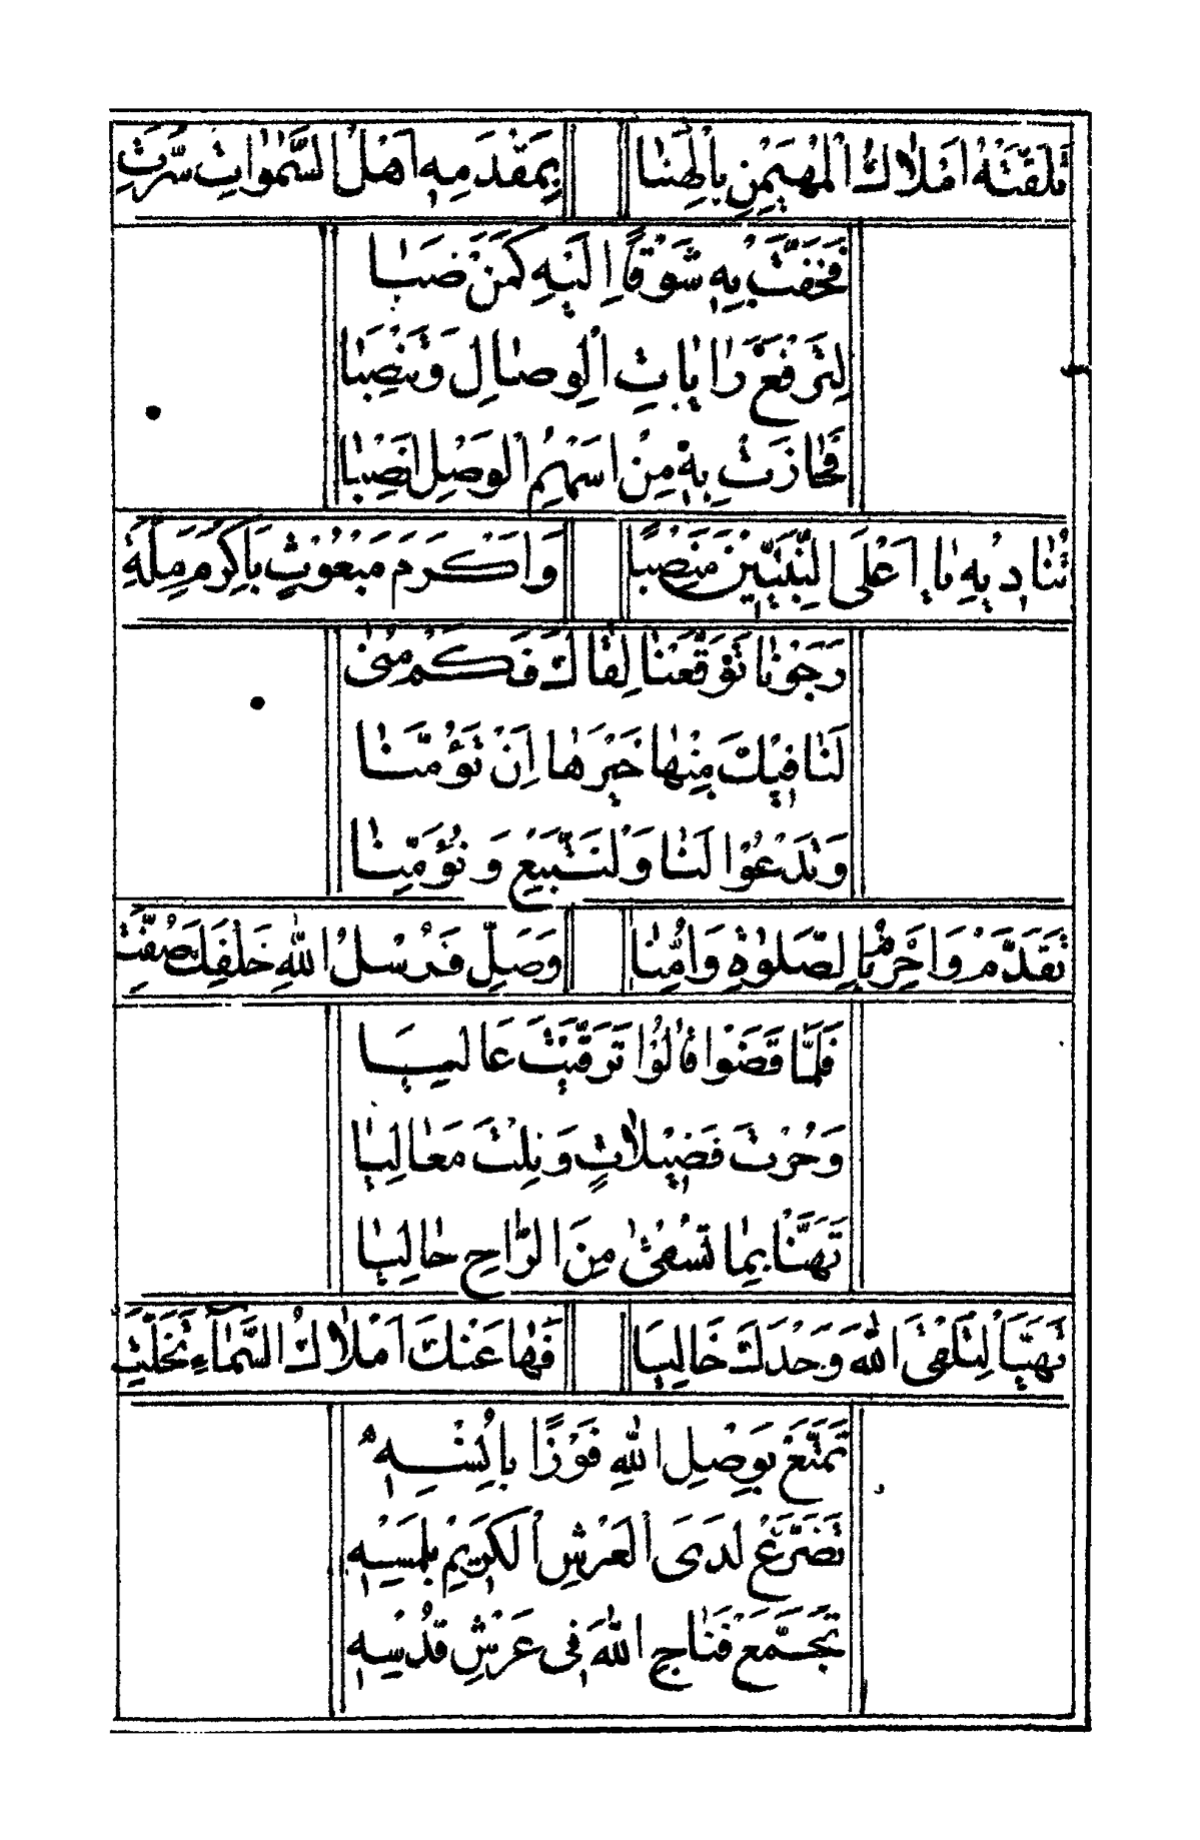 تَلَقَّتْهُ اَمْلَاكُ الْمُهَيْمِنِ بِالْهَنَا بِمَقْدَمِهِ اَهْلُ السَّمٰوَاتِ سُرَّتِ
فَحَفَّتْ بِهِ شَوْقًا اِلَيْهِ كَمَنْ صَبَا
لِتَرْفَعَ رَايَاتِ الْوِصَالِ وَتَنْصِبَا
فَحَازَتْ بِهِ مِنْ اَسْهُمِ الْوَصْلِ اَنْصِبَا
تُنَادِيهِ يَا اَعْلَى النَّبِيِّينَ مَنْصِبًا وَاَكْرَمَ مَبْعُوثٍ بِاَكْرَمِ مِلَّةِ
رَجَوْنَا تَوَقَّعْنَا لِقَاكَ فَكَمْ مُنًى
لَنَا فِيْكَ مِنْهَا خَيْرُهَا اِنْ تَؤُمَّنَا
وَتَدْعُوْا لَنَا وَلْنَتَّبِعْ وَنُؤَمِّنَا
تَقَدَّمْ وَاَحْرِمْ بِالصَّلٰوةِ وَاُمَّنَا وَصَلِّ فَرُسْلُ اللّٰهِ خَلْفَكَ صُفَّتِ
فَلَمَّا قَضَوْا قَالُوْا تَرَقَّيْتَ عَالِيَا
وَحُزْتَ فَضِيْلَاتٍ وَنِلْتَ مَعَالِيَا
تَهَنَّا بِمَا تُسْقٰى مِنَ الرَّاحِ حَالِيَا
تَهَيَّاْ لِتَلْقَى اللّٰهَ وَحْدَكَ خَالِيَا فَهَا عَنْكَ اَمْلَاكُ السَّمَاءِ تَخَلَّتِ
تَمَتَّعْ بِوَصْلِ اللّٰهِ فَوْزًا بِاُنْسِهِ
تَضَرَّعْ لَدَى الْعَرْشِ الْكَرِيْمِ بِلَمْسِهِ
تَجَمَّعْ فَنَاجِ اللّٰهَ فِى عَرْشِ قُدْسِهِ